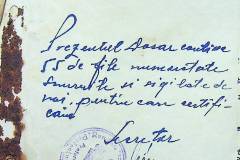 Prezentul Dosar contine
55 de file numerotate
snuruite si sigilate de
noi, pentru care certifi-
căm
Secretar